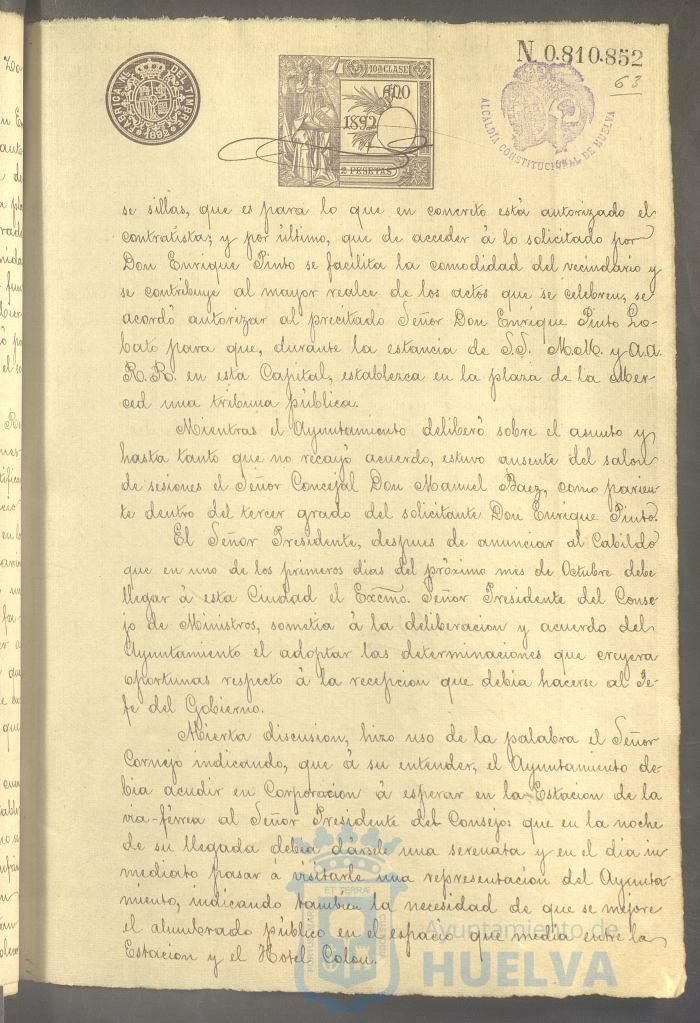 N. 0.810.852
63
FÁBRICA NL. DEL TIMBRE
1892
10ª CLASE
AÑO
1892
2 PESETAS
ALCALDÍA CONSTITUCIONAL DE HUELVA
se sillas, que es para lo que en concreto está autorizado el
contratista; y por último, que de acceder á lo solicitado por
Don Enrique Pinto se facilita la comodidad del vecindario y
se contribuye al mayor realce de los actos que se celebren, se
acordó autorizar al precitado Señor Don Enrique Pinto Lo-
bato para que, durante la estancia de S.S. M.M. y A.A.
R.R. en esta Capital, establezca en la plaza de la Mer-
ced una tribuna pública.
Mientras el Ayuntamiento deliberó sobre el asunto y
hasta tanto que no recayó acuerdo, estuvo ausente del salon
de sesiones el Señor Concejal Don Manuel Baez, como parien-
te dentro del tercer grado del solicitante Don Enrique Pinto.
El Señor Presidente, despues de anunciar al Cabildo
que en uno de los primeros dias del próximo mes de Octubre debe
llegar á esta Ciudad el Excmo. Señor Presidente del Conse-
jo de Ministros, sometia á la deliberacion y acuerdo del
Ayuntamiento el adoptar las determinaciones que creyera
oportunas respecto á la recepcion que debia hacerse al Je-
fe del Gobierno.
Abierta discusion, hizo uso de la palabra el Señor
Cornejo indicando, que á su entender, el Ayuntamiento de-
bia acudir en Corporacion á esperar en la Estacion de la
via-férrea al Señor Presidente del Consejo: que en la noche
de su llegada debia dársele una serenata y en el dia in-
mediato pasar á visitarle una representacion del Ayunta-
miento, indicando tambien la necesidad de que se mejore
el alumbrado público en el espacio que media entre la
Estacion y el Hotel Colon.
ET TERRÆ
Ayuntamiento de
HUELVA